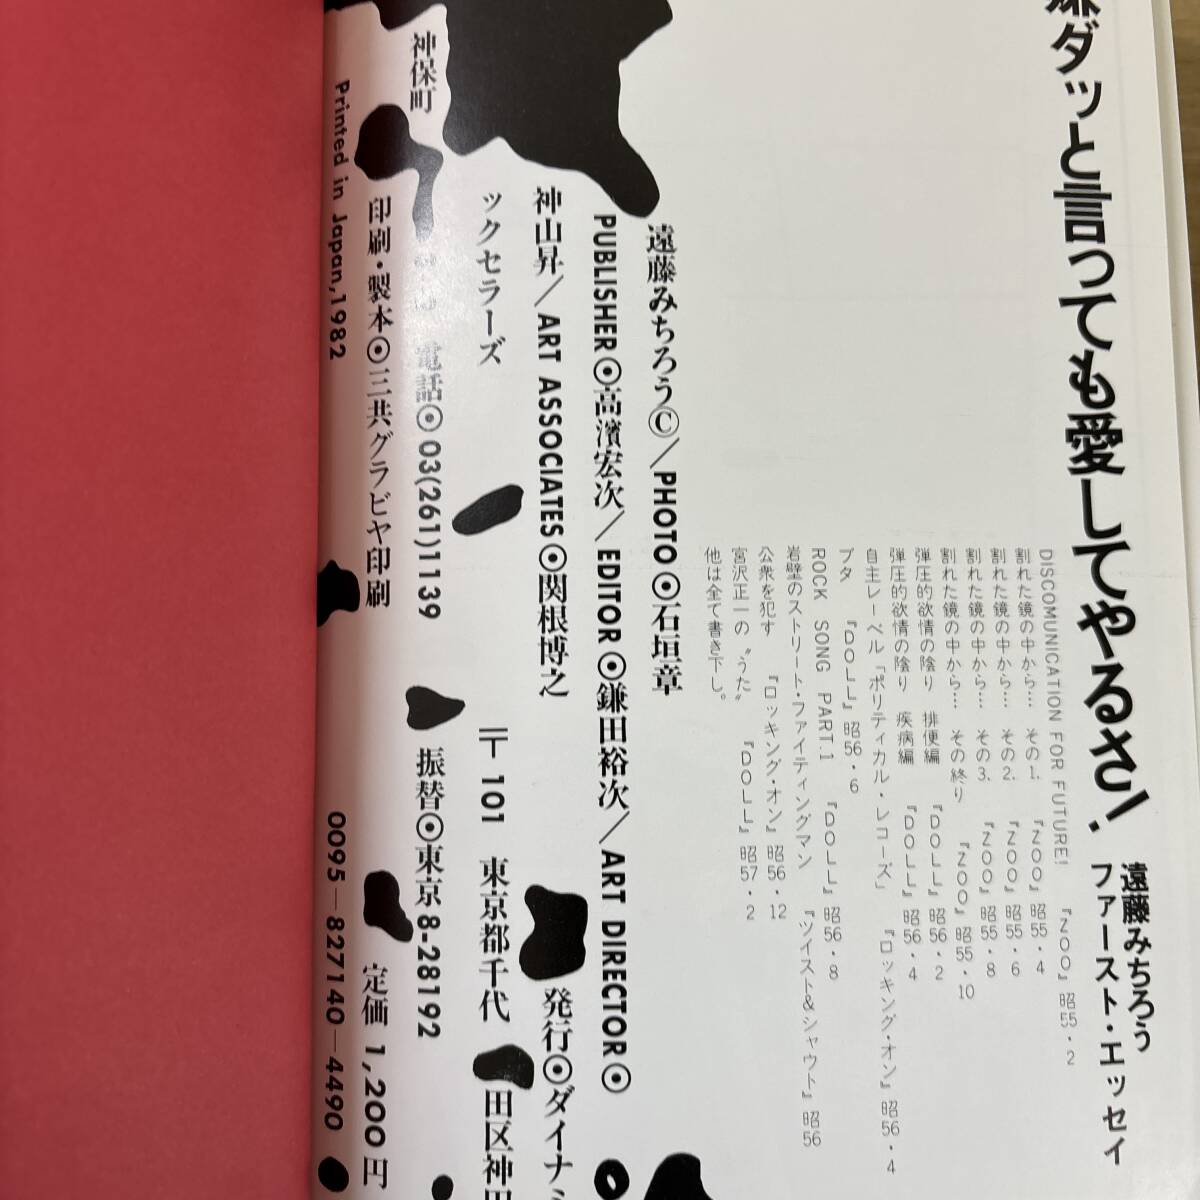 嫌ダッと言っても愛してやるさ！
遠藤みちろう
ファースト・エッセイ
DISCOMUNICATION FOR FUTURE! 『ZOO』昭55・2
割れた鏡の中から… その1. 『ZOO』昭55・4
割れた鏡の中から… その2. 『ZOO』昭55・6
割れた鏡の中から… その3. 『ZOO』昭55・8
割れた鏡の中から… その終り 『ZOO』昭55・10
弾圧的欲情の陰り 排便編 『DOLL』昭56・2
弾圧的欲情の陰り 疾病編 『DOLL』昭56・4
自主レーベル「ポリティカル・レコーズ」 『ロッキング・オン』昭56・4
ブタ 『DOLL』昭56・6
ROCK SONG PART.1 『DOLL』昭56・8
岩壁のストリート・ファイティングマン 『ツイスト&シャウト』昭56
公衆を犯す 『ロッキング・オン』昭56・12
宮沢正一の〝うた〟 『DOLL』昭57・2
他は全て書き下し。
遠藤みちろう©／PHOTO⦿石垣章
PUBLISHER⦿高濱宏次／EDITOR⦿鎌田裕次／ART DIRECTOR⦿
神山昇／ART ASSOCIATES⦿関根博之 発行⦿ダイナミ
ックセラーズ 〒101 東京都千代田区神田
神保町 電話⦿03(261)1139 振替⦿東京8-28192
印刷・製本⦿三共グラビヤ印刷 定価 1,200円
Printed in Japan,1982 0095—827140—4490